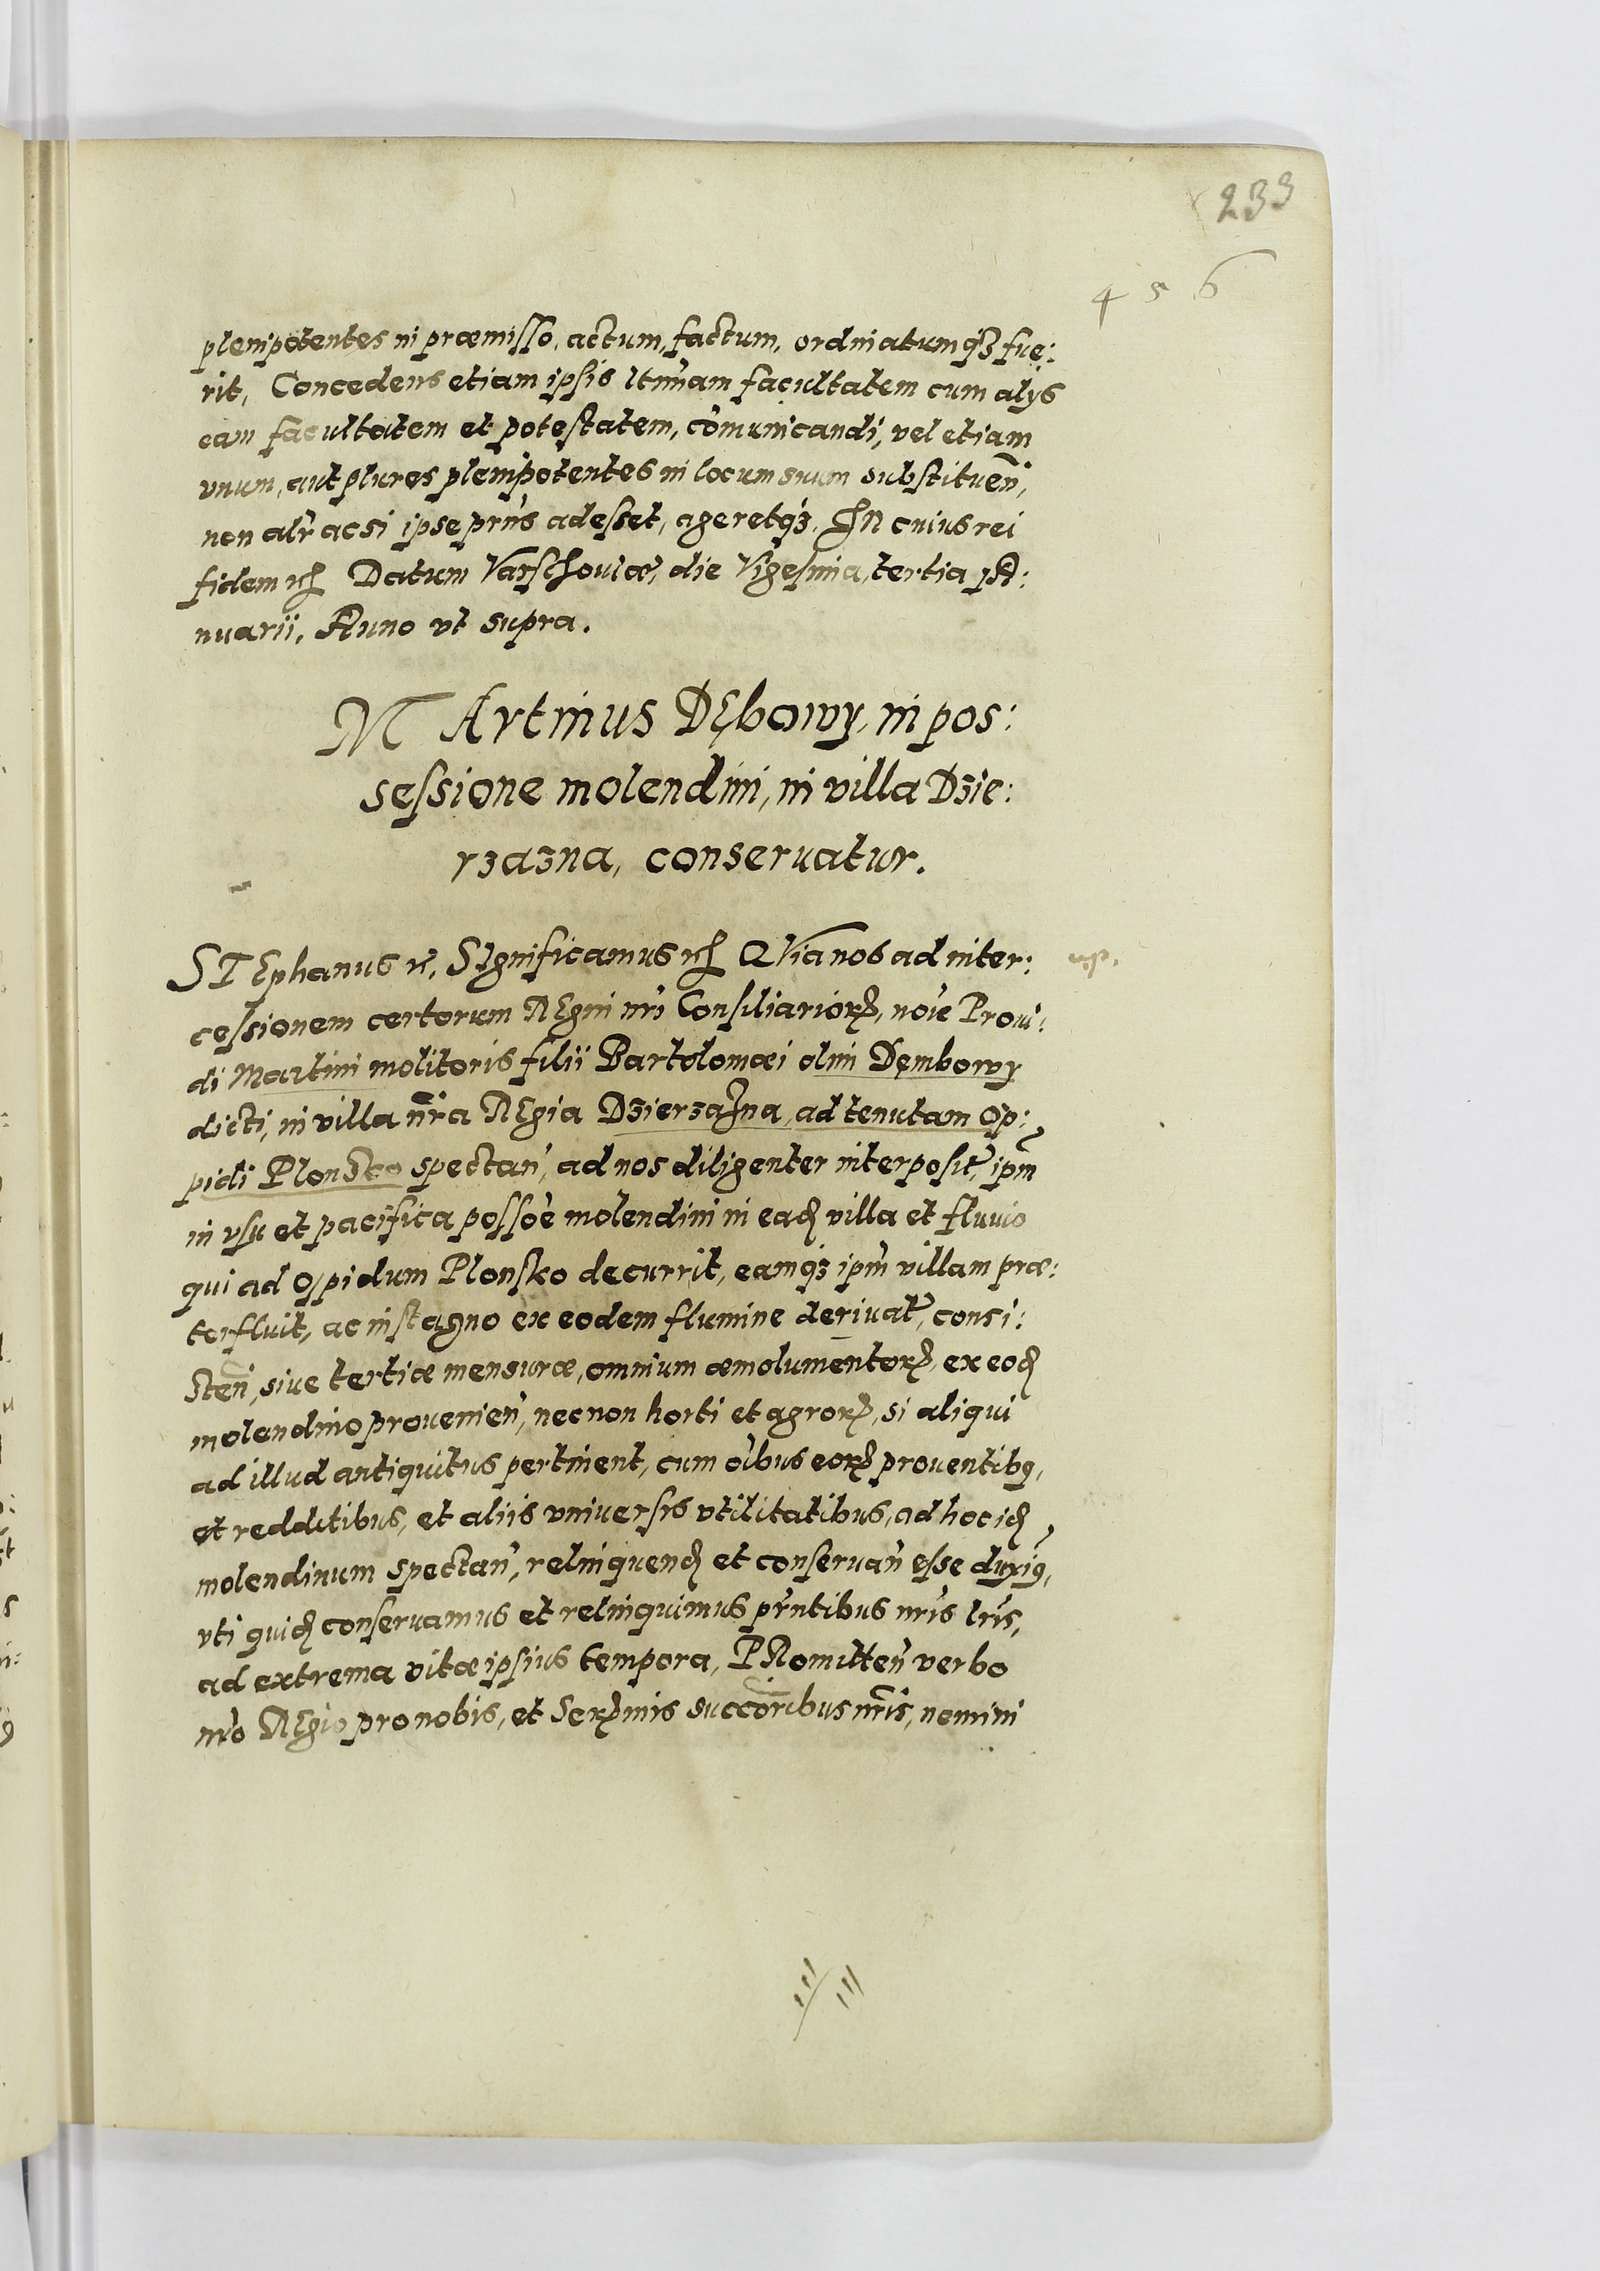 233
4 5 6
plenipotentes in præmisso, actum, factum, ordinatumq₃ fue:
rit, Concedens etiam ipsis ltimam facultatem cum alys
eam facultatem et potestatem, cõmunicandi, vel etiam
vnum, aut plures plenipotentes in locum suum substituen̄,
non alr̃ ac si ipse prñs adesset, ageretq₃. IN cuius rei
fidem ꝛc̃ Datum Varschouiæ, die Vigesima, tertia JA:
nuarii, Anno vt supra.
MArtinus Dębowy, in pos:
sessione molendini, in villa Dzie:
rzazna, conseruatur.
STEphanus ꝛc̃, SIgnificamus ꝛc̃ QVia nos ad inter:
cessionem certorum REgni nr̃i Consiliarioꝝ, noĩe Proui:
di Martini molitoris filii Bartolomæi olim Dęmbowy
dicti, in villa nr̃a REgia Dzierzazna, ad tenutam Op:
pidi Plonsko spectan̄, ad nos diligenter interposit̃, ipm̃
in vsu et pacifica possõe molendini in ead̃ villa et fluuio
qui ad Oppidum Plonsko decurrit, eamq₃ ipm̃ villam præ:
terfluit, ac in stagno ex eodem flumine deriuat̃, consi:
sten̄, siue tertiæ mensuræ, omnium æmolumentoꝝ, ex eod̃
molendino prouenien̄, nec non horti et agroꝝ, si aliqui
ad illud antiquitus pertinent, cum oĩbus eoꝝ prouentibꝰ,
et redditibus, et aliis vniuersis vtilitatibus, ad hoc id̃
molendinum spectan̄, relinquend̃ et conseruan̄ esse duxiꝰ,
vti quid̃ conseruamus et relinquimus pñtibus nr̃is lr̃is,
ad extrema vitæ ipsius tempora, PRomitten̄ verbo
nr̃o REgio pro nobis, et Serꝝmis succõribus nr̃is, nemini